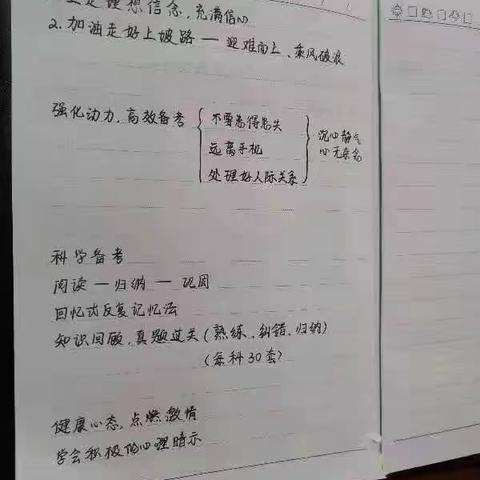 坚定理想信念,充满信心
2. 加油走好上坡路 — 迎难而上、乘风破浪
强化动力,高效备考
不要患得患失
远离手机
处理好人际关系
沉心静气
心无杂念
科学备考
阅读 — 归纳 — 巩固
回忆式反复记忆法
知识回顾,真题过关(熟练、纠错、归纳)
(每科30套)
健康心态,点燃激情
学会积极的心理暗示